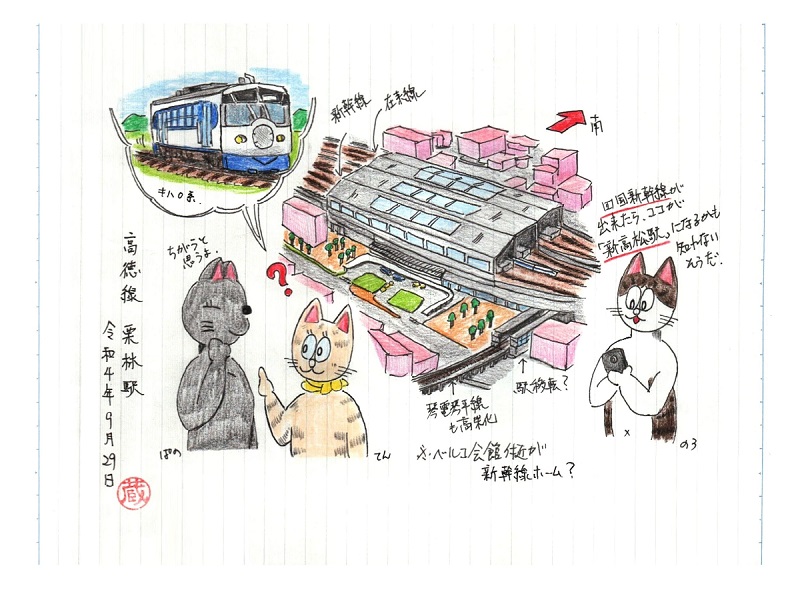 新幹線
在来線
南
キハ0系.
四国新幹線が
出来たら、ココが
「新高松駅」になるかも
知れない
そうだ.
ちがうと
思うよ.
?
高徳線 栗林駅
令和4年9月29日
蔵
ぱの
てん
のろ
琴電琴平線
も高架化
駅移転?
ベルコ会館付近が
新幹線ホーム?